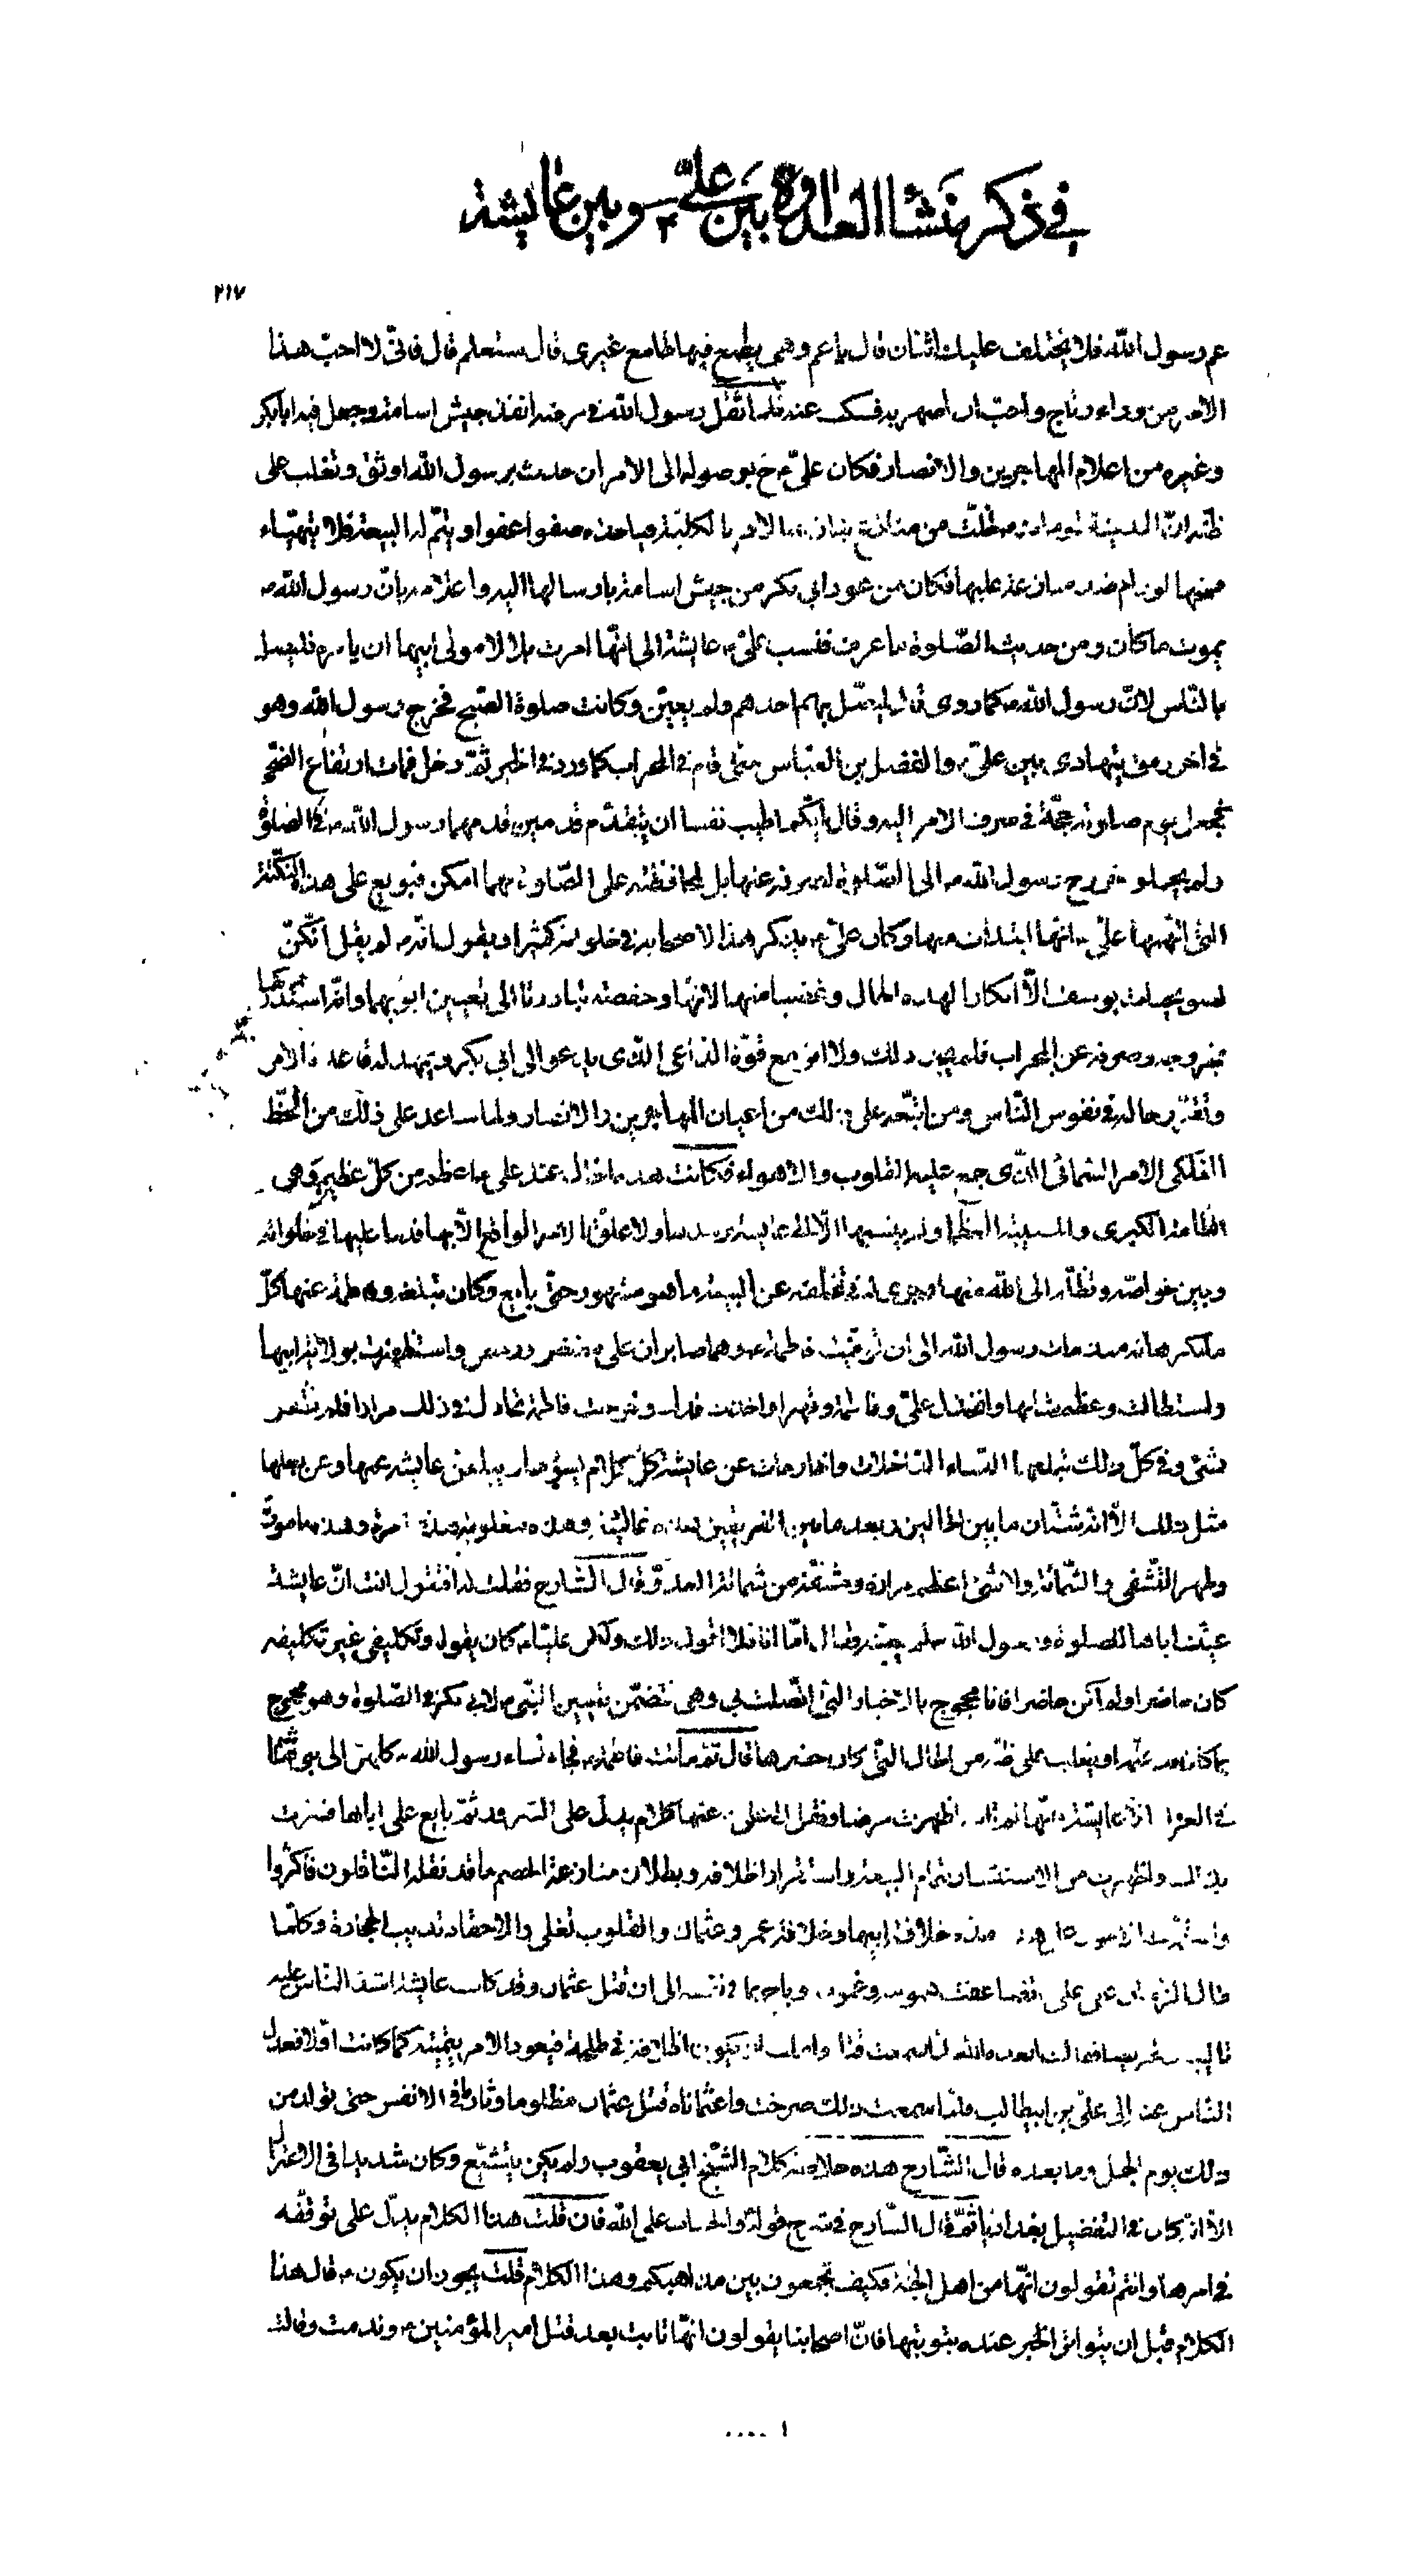 في ذكر منشا العداوة بين علي ع وبين عايشة
٢١٧
عم رسول الله فلا يختلف عليك اثنان قال يا عم وهل يطمع فيها طامع غيرى قال ستعلم قال فانّى لا احبّ هذا
الامر من وراء رتاج واحبّ ان اصحر به فسكت عنه فلما ثقل رسول الله في مرضه انفذ جيش اسامة وجعل فيه ابا بكر
وغيره من اعلام المهاجرين والانصار فكان علىّ ع ح بوصوله الى الامر ان حدث برسول الله اوثق وتغلب على
ظنه انّ المدينة لو مات لخلت من منازع ينازعه الامر بالكلية فياخذه صفوا عفوا ويتمّ له البيعة فلا يتهيّاء
فسخها لو رام ضد منازعة عليها فكان من عود ابي بكر من جيش اسامة بارسالها اليه واعلامه بانّ رسول الله ص
يموت ما كان ومن حديث الصّلوة ما عرف فنسب علىّ ع عايشة الى انّها امرت بلالا مولى ابيها ان يامره فليصل
بالنّاس لانّ رسول الله ص كما روى قال ليصلّ بهم احدهم ولم يعيّن وكانت صلوة الصّبح فخرج رسول الله وهو
في اخر رمق يتهادى بين علىّ ع والفضل بن العبّاس حتى قام في المحراب كما ورد في الخبر ثمّ دخل فمات ارتفاع الضّحى
فجعل يوم صلوته حجّة في صرف الامر اليه وقال ايّكم اطيب نفسا ان يتقدّم قدمين قدمهما رسول الله ص في الصّلوة
ولم يحملوا خروج رسول الله ص الى الصّلوة لصرفه عنها بل لمحافظته على الصّلوة مهما امكن فبويع على هذه النّكتة
الّتى اتّهمها علىّ ع انّها ابتدأت منها وكان علىّ ع يذكر هذا لاصحابه في خلواته كثيرا ويقول انّه ص لم يقل انّكنّ
لصويحبات يوسف الّا انكارا لهذه الحال وغضبا منها لانّها وحفصة تبادرتا الى تعيين ابويهما وانّه استدركها
بخروجه وصرفه عن المحراب فلم يجد ذلك ولا اثر مع قوّة الدّاعى الّذى يدعو الى ابي بكر ويمهد له قاعدة الامر
وتقرّر حاله في نفوس النّاس ومن اتّبعه على ذلك من اعيان المهاجرين والانصار ولما ساعد على ذلك من الحظّ
الفلكى الامر السّمائى الّذى جمع عليه القلوب والاهواء فكانت هذه الحال عند على ع اعظم من كلّ عظيم وهى
الطّامة الكبرى والمصيبة العظمى ولم ينسبها الّا الى عايشة وحدها ولا علّق الامر الواقع الّا بها فدعا عليها في خلواته
وبين خواصّه وتظلّم الى الله منها وجرى له في تخلّفه عن البيعة ما هو مشهور حتى بايع وكان تبلغه وفاطمة عنها كلّ
ما تكرهانه منذ مات رسول الله الى ان توفّيت فاطمة ع وهما صابران على مضض ورمض واستظهرت بولاية ابيها
واستطالت وعظم شانها وانخذل علىّ وفاطمة وقهرا واخذت فدك وخرجت فاطمة تجادل في ذلك مرارا فلم تظفر
بشئ وفي كلّ ذلك تبلغها النّساء الدّاخلات والخارجات عن عايشة كلّ كلام يسؤها ويبلغن عايشة عنها وعن بعلها
مثل ذلك الّا انّه شتّان ما بين الحالين وبعد ما بين الفريقين هذه غالبة وهذه مغلوبة هذه آمرة وهذه مامورة
وظهر التّشفى والشّماتة ولا شئ اعظم مرارة ومشقّة من شماتة العدوّ قال الشّارح فقلت له افتقول انت انّ عايشة
عيّنت اباها للصلوة ورسول الله ص لم يعيّنه فقال امّا انا فلا اقول ذلك ولكن عليّا ع كان يقوله وتكليفى غير تكليفه
كان حاضرا ولم اكن حاضرا فانا محجوج بالاخبار الّتى اتّصلت بي وهى تتضمّن تعيين النّبى ص لابي بكر في الصّلوة وهو محجوج
بما كان قد علمه او يغلب على ظنّه من الحال الّتى كان حضرها قال ثمّ ماتت فاطمة ع فجاء نساء رسول الله ص كلهنّ الى بني هاشم
في العزاء الّا عايشة فانّها لم تات اظهرت مرضا ونقل الى على ع عنها كلام يدلّ على السّرور ثمّ بايع على اباها فسّرت
بذلك واظهرت من الاستبشار بتمام البيعة واستقرار الخلافة وبطلان منازعة الخصم ما قد نقله النّاقلون فاكثروا
واستمرّت الامور على هذا مدة خلافة ابيها وخلافة عمر وعثمان والقلوب تغلى والاحقاد تذيب الحجارة وكلّما
طال الزمان على على تضاعفت همومه وغمومه وباح بما في نفسه الى ان قتل عثمان وقد كانت عايشة اشدّ النّاس عليه
تاليبا وتحريضا فقالت ابعده الله لما سمعت قتله واملت ان يكون الخلافة في طلحة فيعود الامر تيميّة كما كانت اوّلا فعدل
النّاس عنه الى علىّ بن ابيطالب فلمّا سمعت ذلك صرخت واعثماناه قتل عثمان مظلوما وثار ما في الانفس حتى تولد من
ذلك يوم الجمل وما بعده قال الشّارح هذه خلاصة كلام الشّيخ ابي يعقوب ولم يكن يتشيّع وكان شديدا في الاعتزال
الّا انّه كان في التفضيل بغداديّا ثمّ قال الشّارح في شرح قوله والحساب على الله فان قلت هذا الكلام يدلّ على توقّفه
في امرها وانتم تقولون انّها من اهل الجنّة فكيف تجمعون بين مذاهبكم وهذا الكلام قلت يجوز ان يكون ع قال هذا
الكلام قبل ان يتواتر الخبر عنده بتوبتها فانّ اصحابنا يقولون انّها تابت بعد قتل امير المؤمنين ع وندمت وقالت